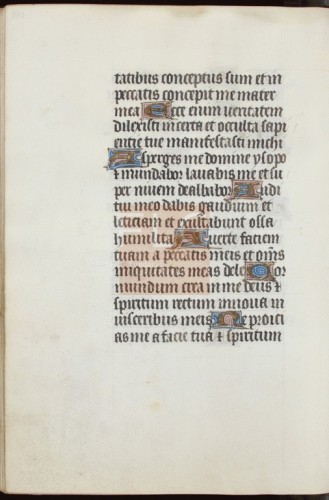 tatibus conceptus sum et in
peccatis concepit me mater
mea Ecce enim veritatem
dilexisti incerta et occulta sapi
entie tue manifestasti michi
Asperges me domine ysopo
et mundabor lavabis me et su
per nivem dealbabor Audi
tui meo dabis gaudium et
leticiam et exultabunt ossa
humiliata Averte faciem
tuam a peccatis meis et omnes
iniquitates meas dele Cor
mundum crea in me deus et
spiritum rectum innova in
visceribus meis Ne proici
as me a facie tua et spiritum